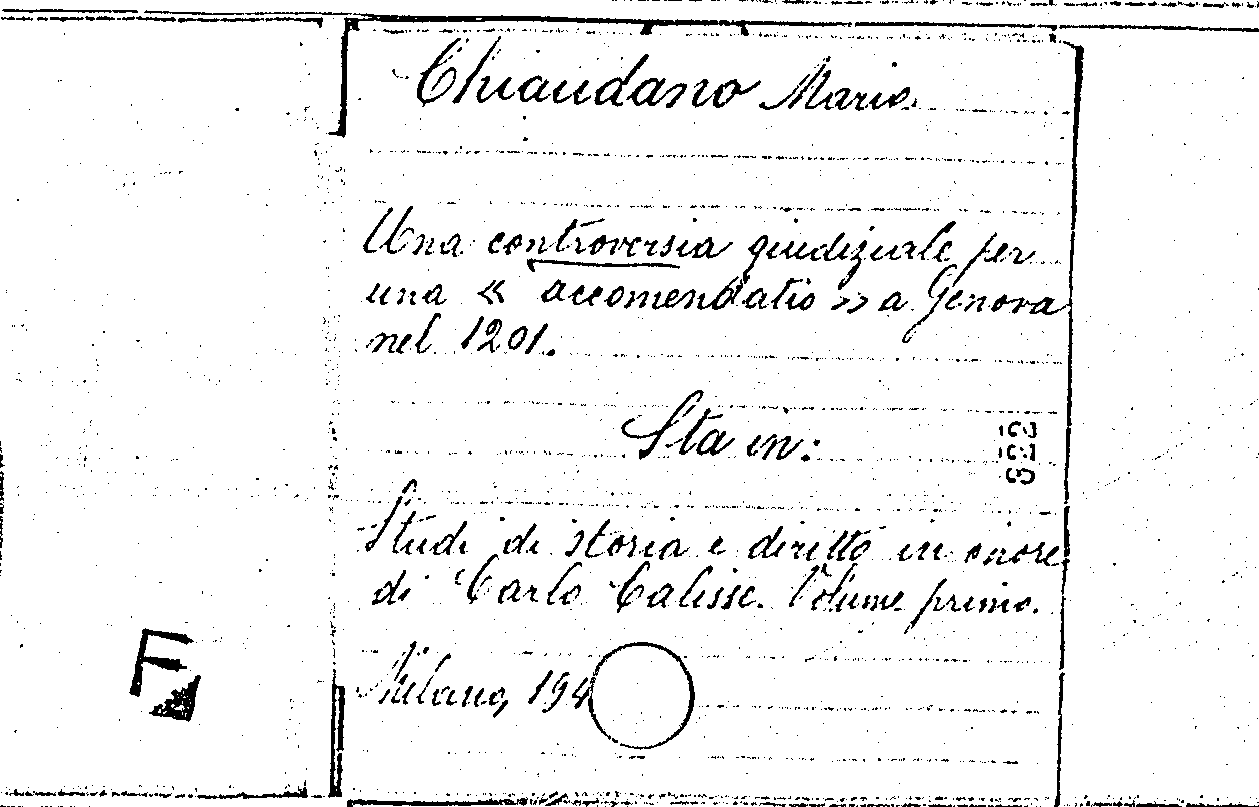 Chiaudano Mario.
Una controversia giudiziale per
una « accomendatio » a Genova
nel 1201.
Sta in:
Studi di storia e diritto in onore
di Carlo Calisse. Volume primo.
Milano, 194
F